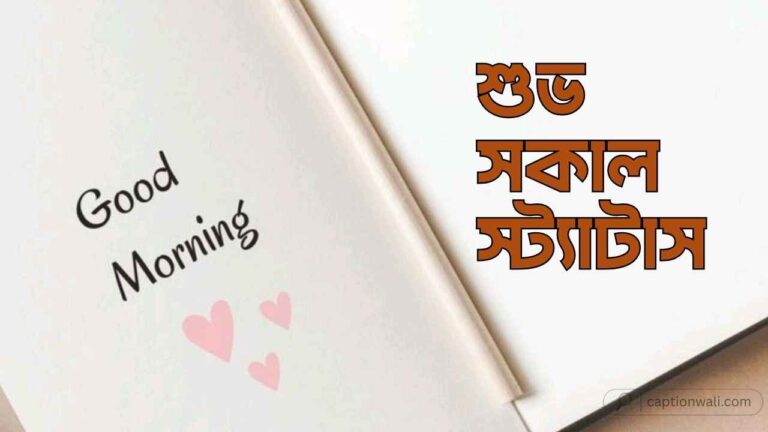 Good
Morning
শুভ
সকাল
স্ট্যাটাস
captionwali.com